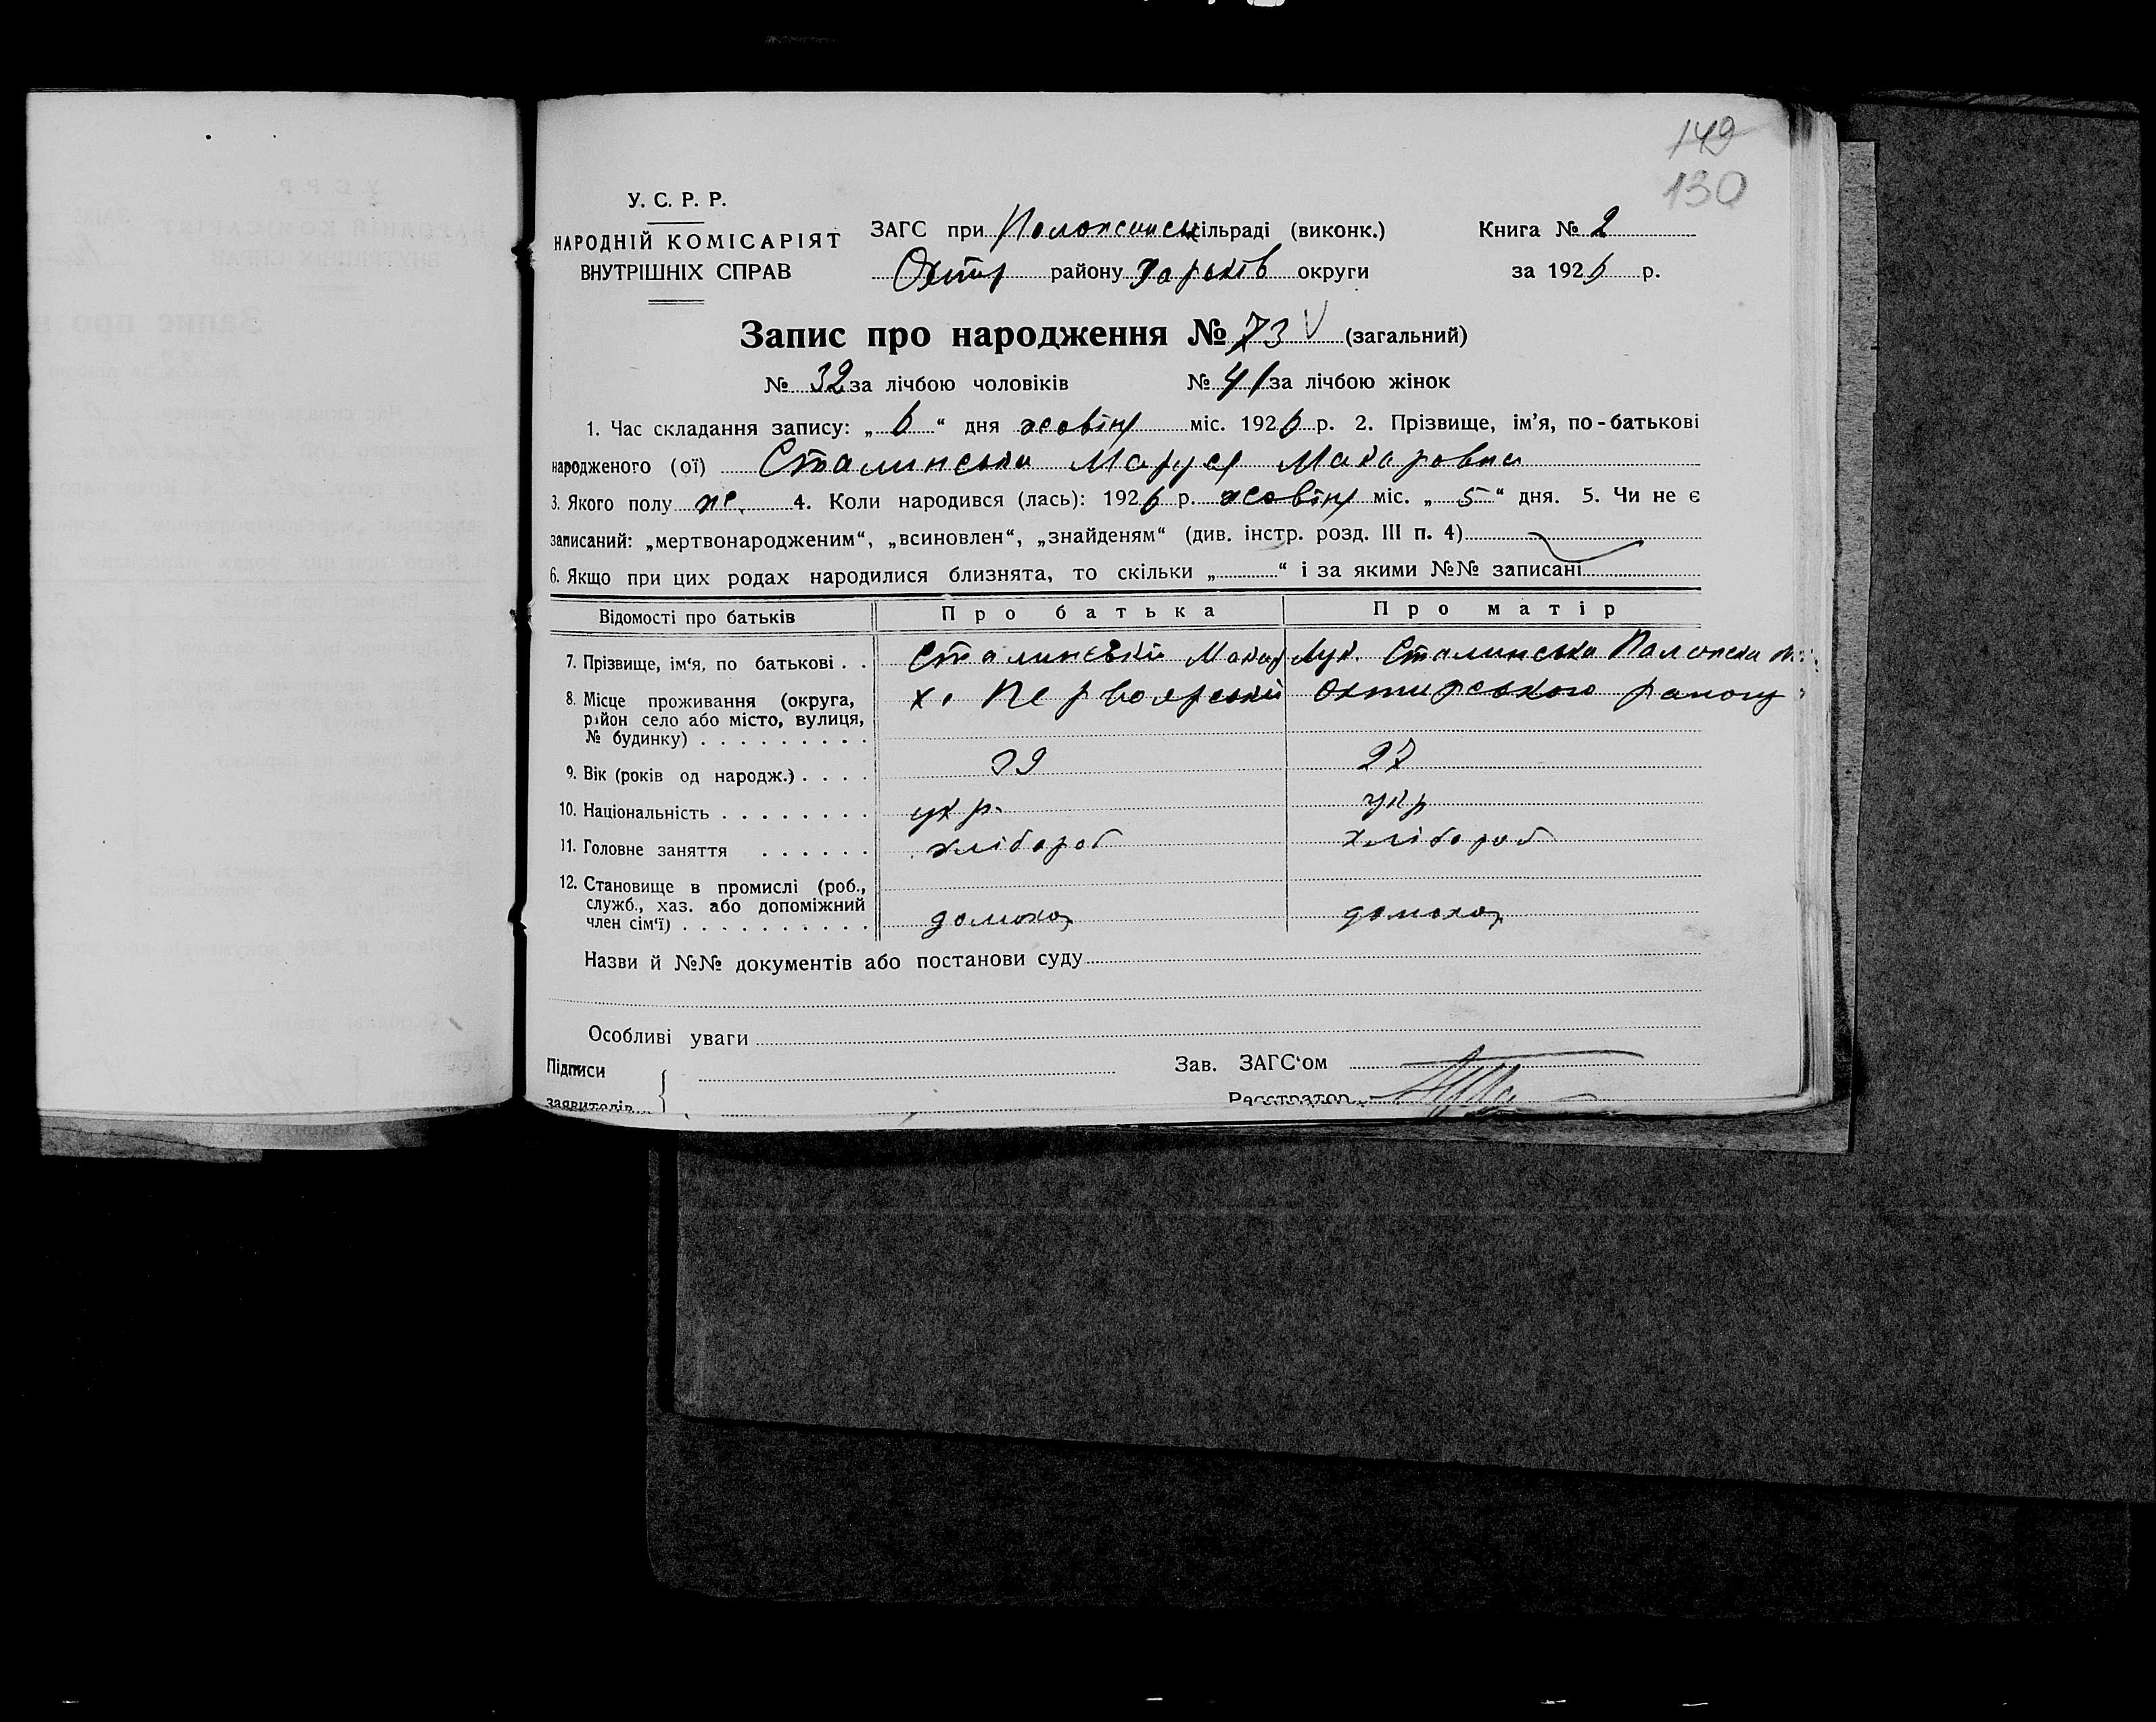 149
130
У. С. Р. Р.
НАРОДНІЙ КОМІСАРІЯТ
ВНУТРІШНІХ СПРАВ
ЗАГС при сільраді (виконк.)
Охтир району Харьків округи
Книга № 2
за 1926 р.
Запис про народження № 73 V (загальний)
№ 32 за лічбою чоловіків № 41 за лічбою жінок
1. Час складання запису: „ 6 “ дня жовтня міс. 1926 р. 2. Прізвище, ім’я, по-батькові
народженого (ої) Сталинська Маруся Макаровна
3. Якого полу ж. 4. Коли народився (лась): 1926 р. жовтня міс. „ 5 “ дня. 5. Чи не є
записаний: „мертвонародженим“, „всиновлен“, „знайденям“ (див. інстр. розд. III п. 4)
6. Якщо при цих родах народилися близнята, то скільки „ “ і за якими №№ записані
Відомості про батьків Про батька Про матір
7. Прізвище, ім‘я, по батькові . . Сталинські Макар Лук. Сталинська
8. Місце проживання (округа, х. Первоярські Охтирського району
район село або місто, вулиця,
№ будинку) . . . . . . . . .
9. Вік (років од народж.) . . . . 39 27
10. Національність . . . . . . . . укр. укр
11. Головне заняття . . . . . . хлібороб хлібороб
12. Становище в промислі (роб.,
служб., хаз. або допоміжний
член сім‘ї) . . . . . . . . . . домохоз домохоз
Назви й №№ документів або постанови суду
Особливі уваги
Підписи
Зав. ЗАГС‘ом
заявителів
Реєстратор